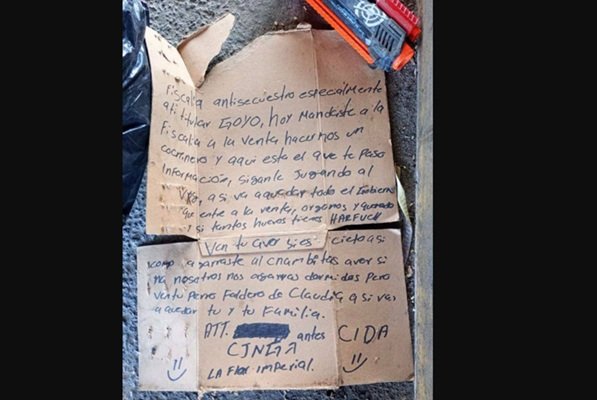 Fiscalia antisecuestro especialmente
a ti titular GOYO, hoy Mandaste a la
Fiscalia a la venta hacernos un
cochinero y aqui esta el que te Paso
Información, siganle Jugando al
Vrgo, a si va aquedar todo el Gobierno
que entre a la venta, organos y
y si tantos huevos tienes HARFUCH
Ven tu aver si es cieto asi
como agarraste al chambitas aver si
na nosotros nos agarras dormidos Pero
ven tu Perro Faldero de Claudia a si vas
a quedar tu y tu Familia.
ATT. antes CIDA
CJNGA
LA Flor imperial.